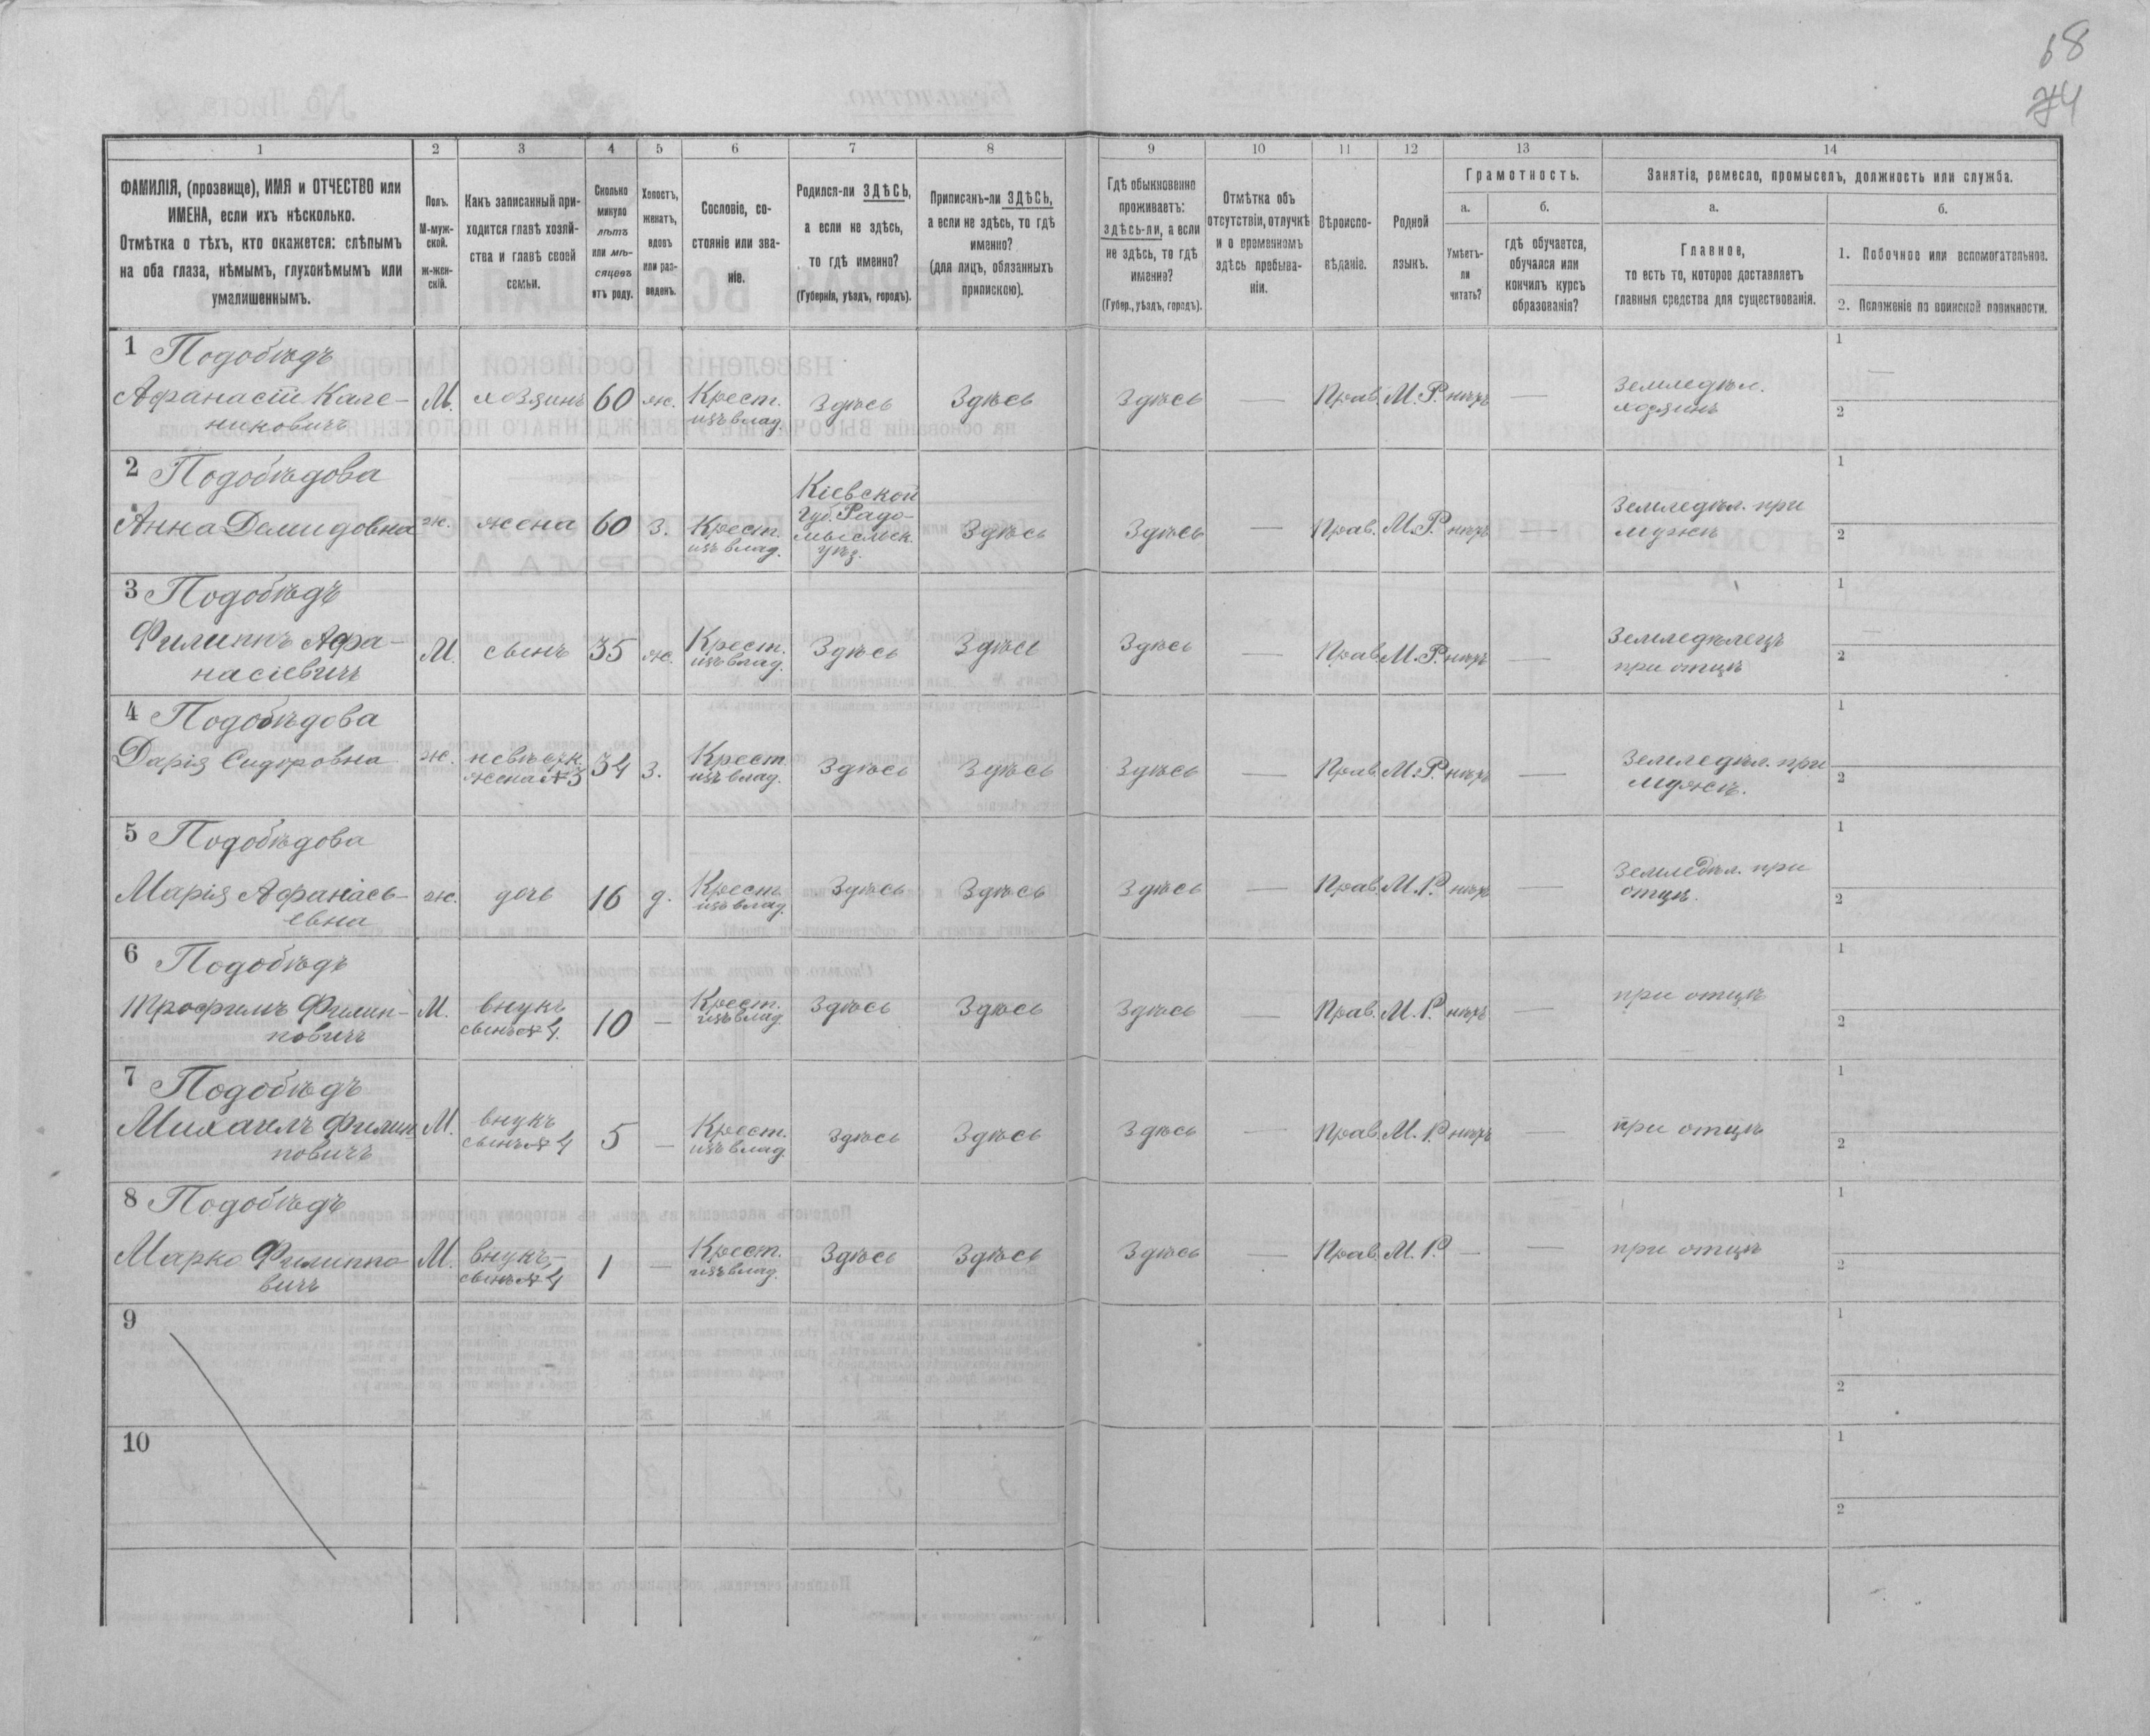 68
74
1 2 3 4 5 6 7 8 9 10 11 12 13 14
ФАМИЛІЯ, (прозвище), ИМЯ и ОТЧЕСТВО или
ИМЕНА, если ихъ нѣсколько.
Отмѣтка о тѣхъ, кто окажется: слѣпымъ
на оба глаза, нѣмымъ, глухонѣмымъ или
умалишеннымъ.
Полъ.
М-муж-
ской.
ж-жен-
скій.
Какъ записанный при-
ходится главѣ хозяй-
ства и главѣ своей
семьи.
Сколько
минуло
лѣтъ
или мѣ-
сяцевъ
отъ роду.
Холостъ,
женатъ,
вдовъ
или раз-
веденъ.
Сословіе, со-
стояніе или зва-
ніе.
Родился-ли ЗДѢСЬ,
а если не здѣсь,
то гдѣ именно?
(Губернія, уѣздъ, городъ).
Приписанъ-ли ЗДѢСЬ,
а если не здѣсь, то гдѣ
именно?
(для лицъ, обязанныхъ
припискою).
Гдѣ обыкновенно
проживаетъ:
здѣсь-ли, а если
не здѣсь, то гдѣ
именно?
(Губер., уѣздъ, городъ).
Отмѣтка объ
отсутствіи, отлучкѣ
и о временномъ
здѣсь пребыва-
ніи.
Вѣроиспо-
вѣданіе.
Родной
языкъ.
Грамотность.
а.
Умѣетъ-
ли
читать?
б.
гдѣ обучается,
обучался или
кончилъ курсъ
образованія?
Занятіе, ремесло, промыселъ, должность или служба.
а.
Главное,
то есть то, которое доставляетъ
главныя средства для существованія.
б.
1. Побочное или вспомогательное.
2. Положеніе по воинской повинности.
1 Подобѣдъ
Афанасій Кале-
никовичъ
М. хозяинъ 60 ж. Крест.
изъ влад.
Здѣсь Здѣсь Здѣсь — Прав. М.Р. нѣтъ —
Земледѣл.
хозяинъ
1 —
2
2 Подобѣдова
Анна Демидовна
ж. жена 60 З. Крест.
изъ влад.
Кіевской
Губ. Радо-
мысльск.
уѣз.
Здѣсь Здѣсь — Прав. М.Р. нѣтъ —
Земледѣл. при
мужѣ
1
2
3 Подобѣдъ
Филиппъ Афа-
насіевичъ
М. сынъ 35 ж. Крест.
изъ влад.
Здѣсь Здѣсь Здѣсь — Прав. М.Р. нѣтъ —
Земледѣлецъ
при отцѣ
1 —
2
4 Подобѣдова
Дарія Сидоровна
ж. невѣстк.
жена №3
34 З. Крест.
изъ влад.
Здѣсь Здѣсь Здѣсь — Прав. М.Р. нѣтъ —
Земледѣл. при
мужѣ.
1
2
5 Подобѣдова
Марія Афанась-
евна
ж. дочь 16 д. Крест.
изъ влад.
Здѣсь Здѣсь Здѣсь — Прав. М.Р. нѣтъ —
Земледѣл. при
отцѣ.
1
2
6 Подобѣдъ
Трофимъ Филип-
повичъ
М. внукъ
сынъ № 4.
10 — Крест.
изъ влад.
Здѣсь Здѣсь Здѣсь — Прав. М.Р. нѣтъ —
при отцѣ
1
2
7 Подобѣдъ
Михаилъ Филип
повичъ
М. внукъ
сынъ № 4
5 — Крест.
изъ влад.
Здѣсь Здѣсь Здѣсь — Прав. М.Р. нѣтъ —
при отцѣ
1
2
8 Подобѣдъ
Марко Филиппо-
вичъ
М. внукъ
сынъ № 4
1 — Крест.
изъ влад.
Здѣсь Здѣсь Здѣсь — Прав. М.Р. — —
при отцѣ
1
2
9
1
2
10
1
2